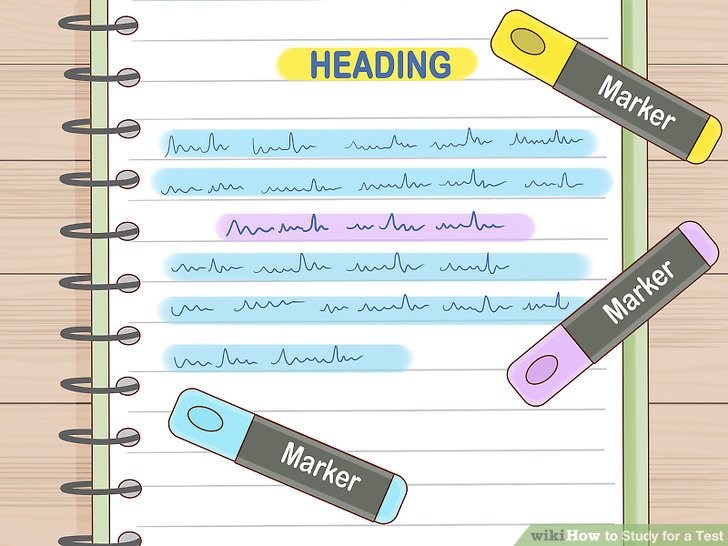 HEADING
Marker
Marker
Marker
wikiHow to Study for a Test